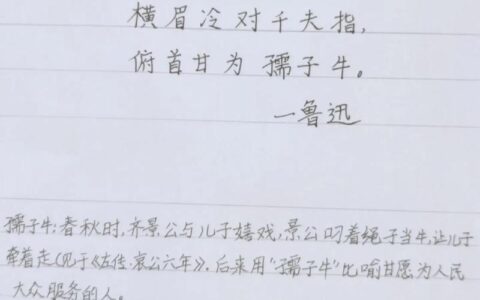 横眉冷对千夫指,
俯首甘为孺子牛。
—鲁迅
孺子牛:春秋时,齐景公与儿子嬉戏,景公叼着绳子当牛,让儿子
牵着走(见于《左传·哀公六年》)。后来用“孺子牛”比喻甘愿为人民
大众服务的人。